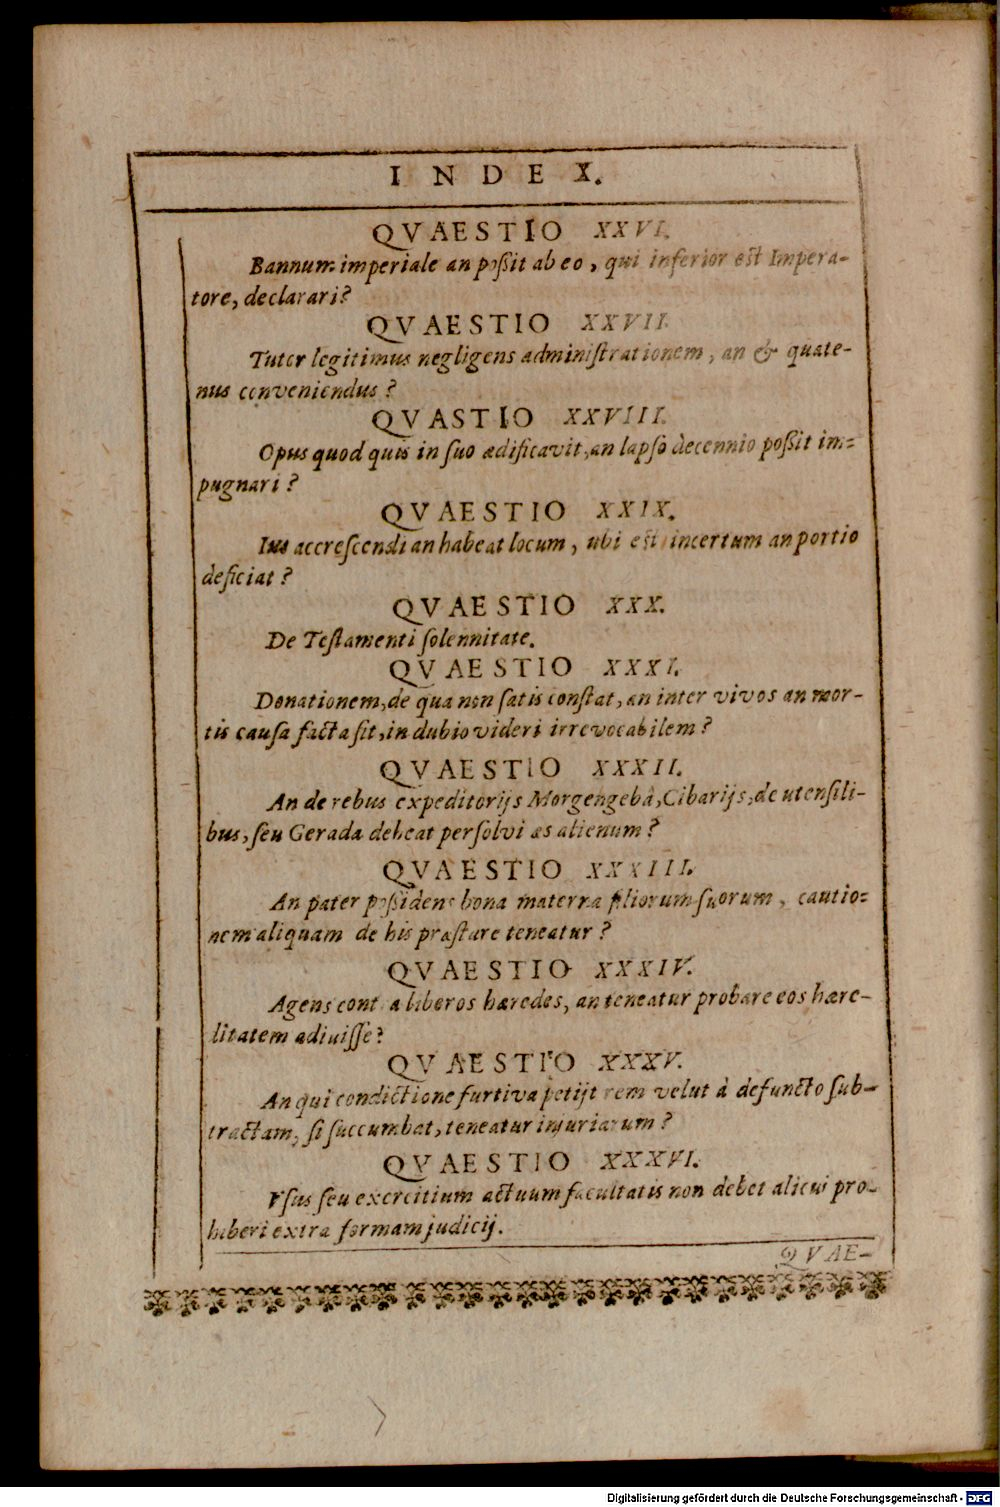 INDEX.
QVAESTIO XXVI.
Bannum imperiale an poßit ab eo, qui inferior est Impera-
tore, declarari?
QVAESTIO XXVII.
Tutor legitimus negligens adminiſtrationem, an & quate-
nus conveniendus?
QVASTIO XXVIII.
Opus quod quis in ſuo ædificavit, an lapſo decennio poßit im-
pugnari?
QVAESTIO XXIX.
Ius accreſcendi an habeat locum, ubi est incertum an portio
deficiat?
QVAESTIO XXX.
De Teſtamenti ſolennitate.
QVAESTIO XXXI.
Donationem, de qua non ſatis conſtat, an inter vivos an mor-
tis cauſa facta ſit, in dubio videri irrevocabilem?
QVAESTIO XXXII.
An de rebus expeditorijs Morgengebâ, Cibarijs, de utenſili-
bus, ſeu Gerada debeat perſolvi æs alienum?
QVAESTIO XXXIII.
An pater poßidens bona materna filiorum ſuorum, cautio-
nem aliquam de his præſtare teneatur?
QVAESTIO XXXIV.
Agens contra liberos hæredes, an teneatur probare eos hære-
litatem adiviſſe?
QVAESTIO XXXV.
An qui condictione furtiva petijt rem velut à defuncto ſub-
tractam, ſi ſuccumbat, teneatur injuriarum?
QVAESTIO XXXVI.
Vſus ſeu exercitium actuum facultatis non debet alicui pro-
hiberi extra formam judicij.
QVAE-
Digitalisierung gefördert durch die Deutsche Forschungsgemeinschaft - DFG